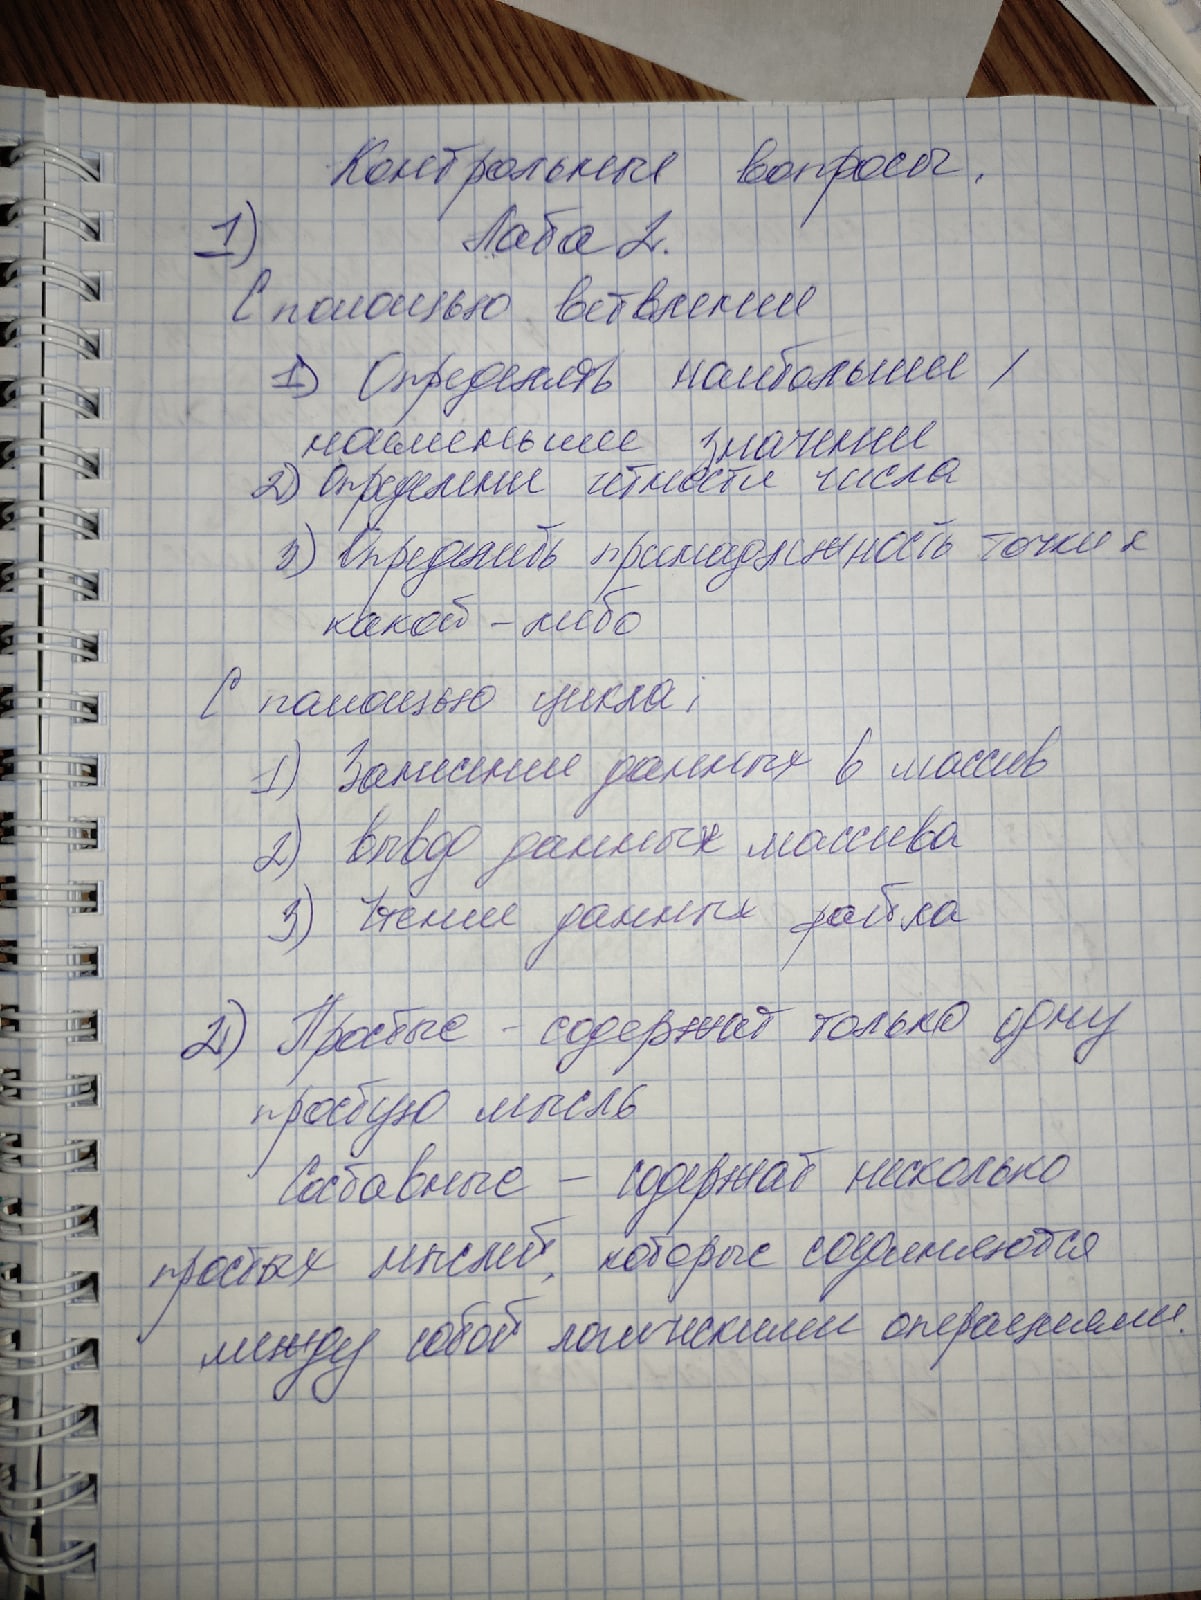 Контрольные вопросы.
1) Лаба 2.
С помощью ветвления
1) Определять наибольшее /
наименьшее значение
2) Определение чётности числа
3) Определить принадлежность точки к
какой-либо
С помощью цикла:
1) Занесение данных в массив
2) Вывод данных массива
3) Чтение данных файла
2) Простые - содержат только одну
простую мысль
Составные - содержат несколько
простых мыслей, которые соединяются
между собой логическими операциями.